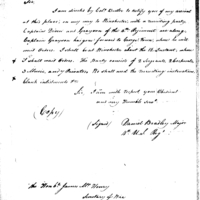 Sir,
I am directed by Col. Butler to notify you of my arrival
at this place; on my way to Winchester with a recruiting party
Captains Brown and Grayson of the 4th Regiment are along,
Captain Grayson has gone forward to George Town, where he will
wait orders. I shall leave Winchester about the 12 Instant, where
I shall wait orders. The party consists of 4 Sergeants
3 Music, and 4 Privates. We shall need the recruiting instructions
blank indentments &c.
Sir, I am with respect your Obedient
and very humble servt
(Copy)
(Signed) Daniel Bradley Major
4th U.S. Regt
The Honble James McHenry
Secretary of War